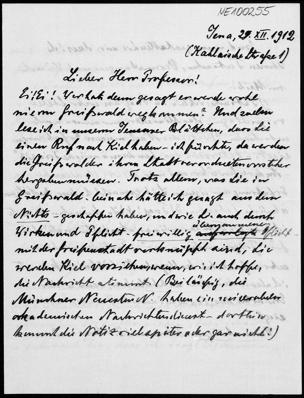 ME100255
Jena, 29. XII. 1912
(Kahlaische Straße 1)
Lieber Herr Professor!
Ei! Ei! Wer hat denn gesagt er werde wohl
nie von Greifswald wegkommen? Und
lese ich in unserem Jenenser Blättchen, dass Sie
einen Ruf nach Kiel haben – ich fürchte, da werden
die Greifswalder ihren Stadtverordnetenvorsteher
hergeben müssen. Trotz allem, was Sie in
Greifswald beinahe hätte ich gesagt aus dem
Nichts – geschaffen haben, und wie Sie auch durch
Wirken und Pflicht – freiwillig
mit der Greifenstadt verknüpft sind, Sie
werden Kiel vorziehen, wenn, wie ich hoffe,
die Nachricht stimmt. (Beiläufig, die
Münchner Neuesten N. haben ein
akademischen Nachrichtendienst – dorthin
kommt die Notiz viel später oder gar nicht!)